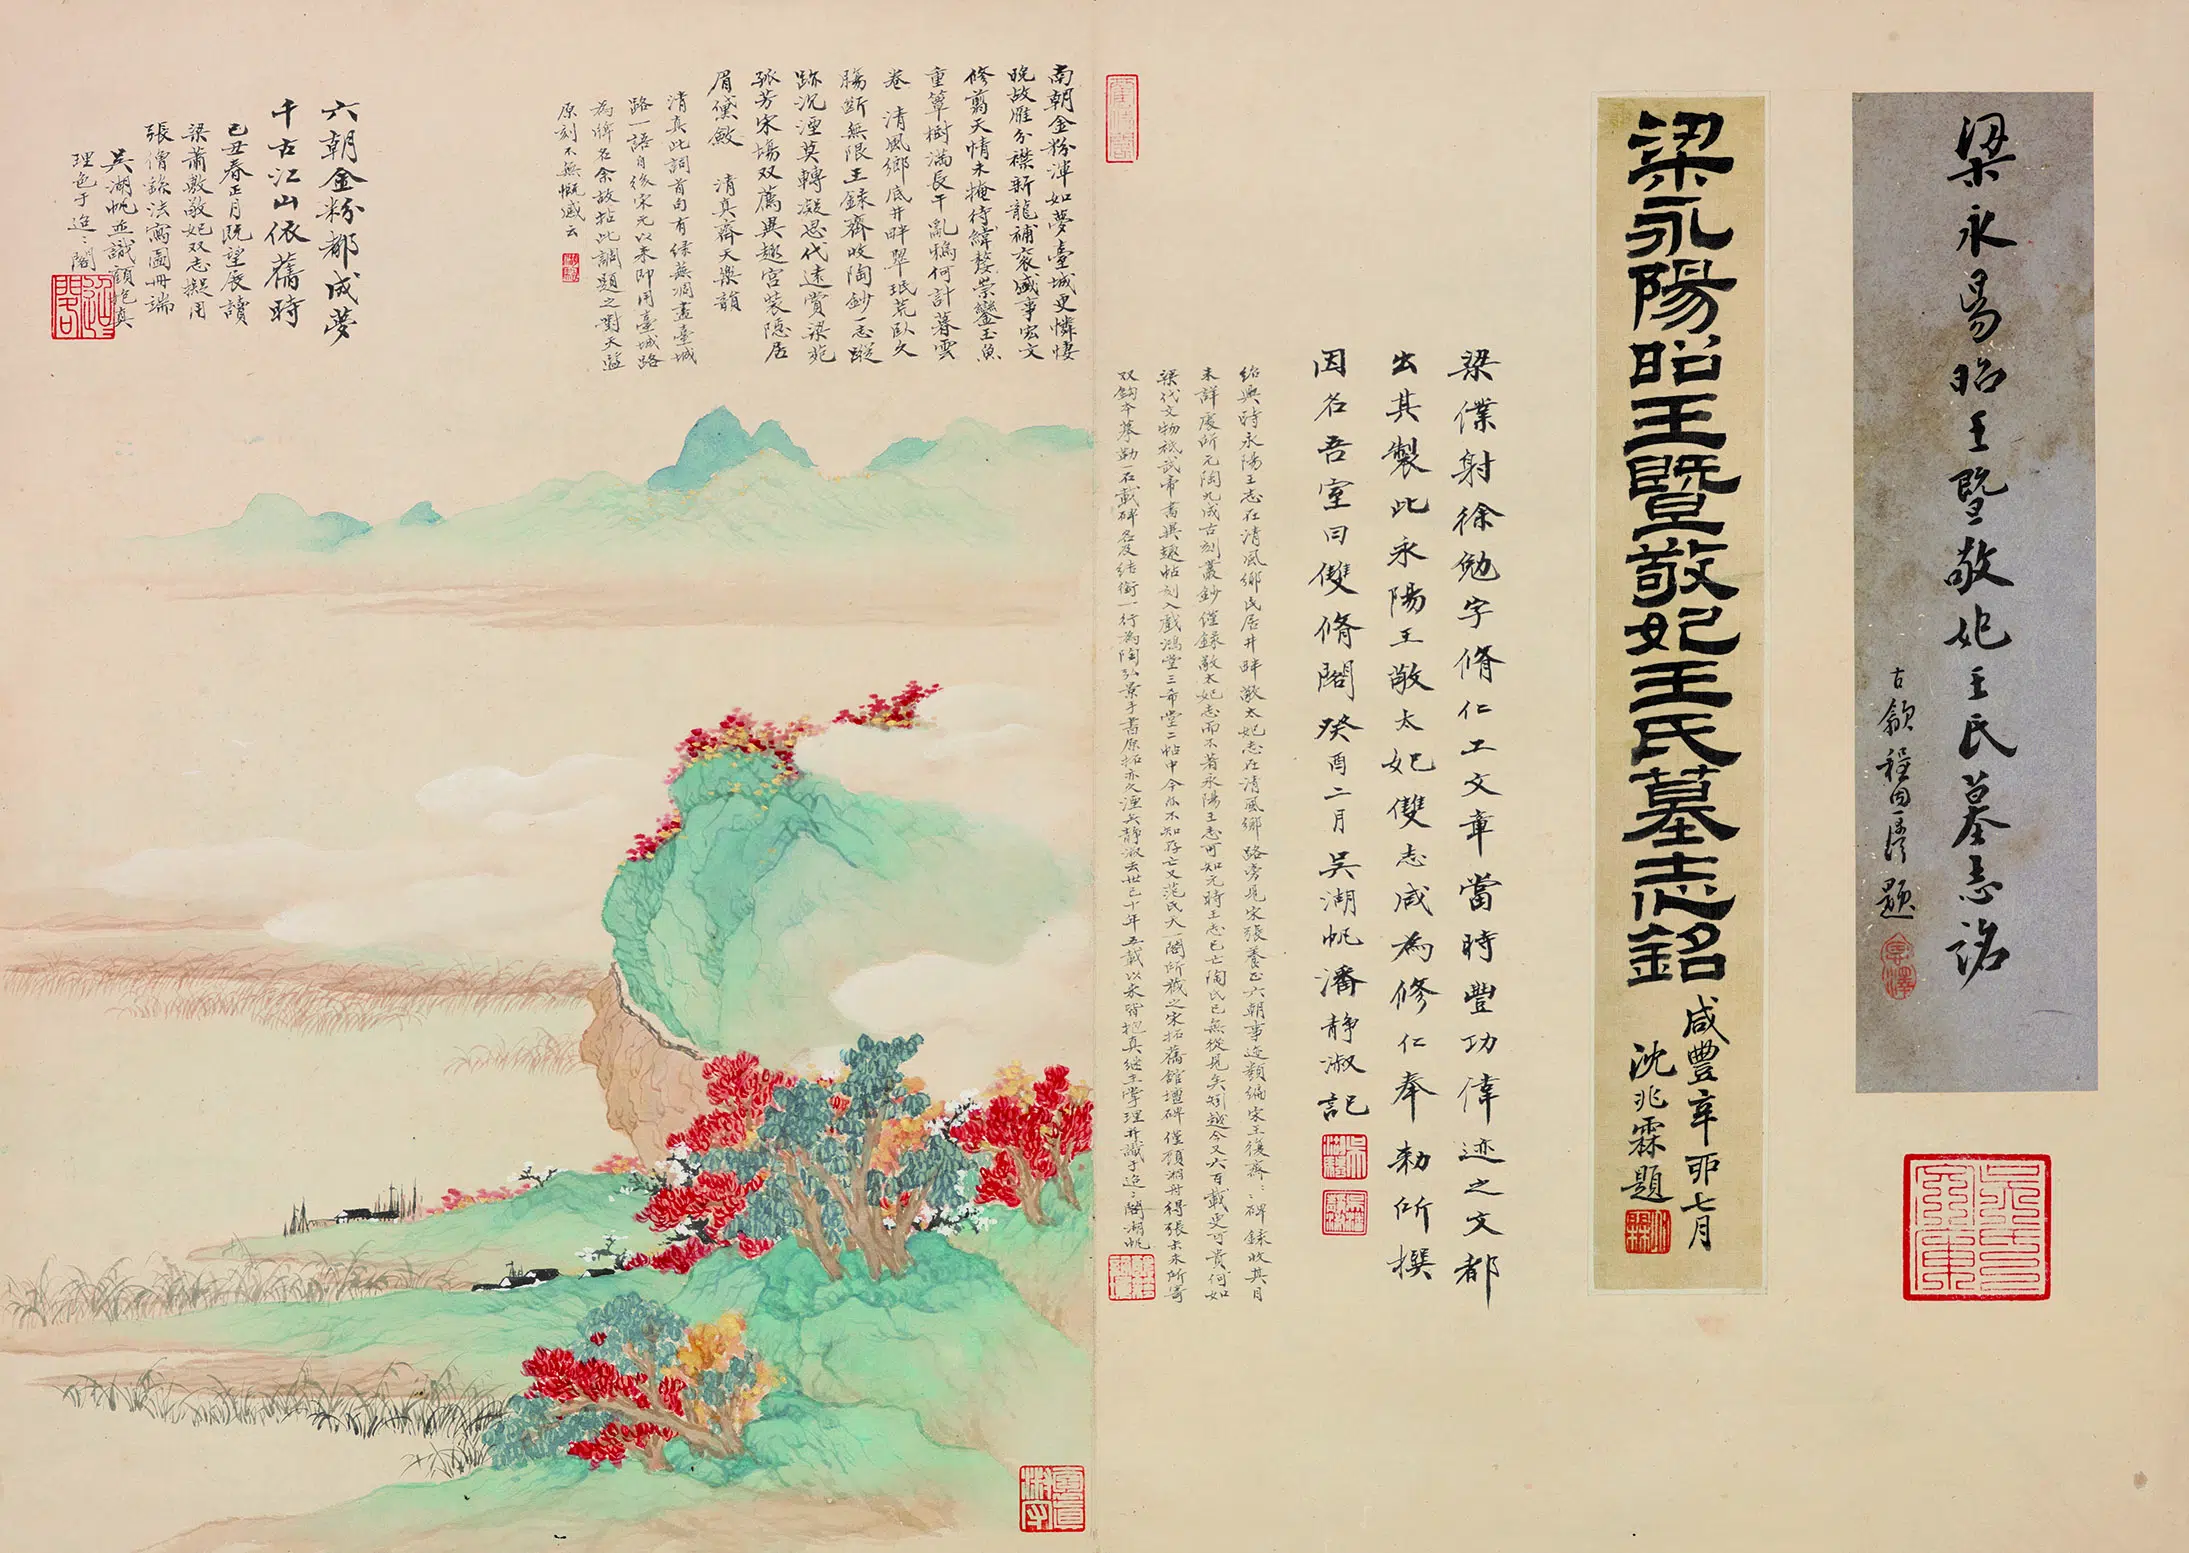 梁永昜昭王暨敬妃王氏墓志銘
古歙程恩澤題
梁永陽昭王暨敬妃王氏墓志銘
咸豐辛酉七月
沈兆霖題
梁僕射徐勉字脩仁工文章當時豐功偉迹之文都
出其製此永陽王敬太妃雙志咸為修仁奉勅所撰
因名吾室曰雙脩閣癸酉二月吳湖帆潘靜淑記
紹興時永陽王志在清風鄉民居井畔敬太妃志在清風鄉路旁見宋張養正六朝事迹類編宋王復齋碑錄收其目
未詳處所元陶九成古刻叢鈔僅錄敬太妃志而不著永陽王志可知元時王志已亡陶氏已無從見矣矧越今又六百載更可貴何如
梁代文物祗武帝書異趣帖刻入戲鴻堂三希堂二帖中今亦不知存亡又范氏天一閣所藏之宋拓舊館壇碑僅顧湘舟得張未未所寄
双鈎本摹勒一石載碑名及結銜一行為陶弘景手書原拓亦久湮矣靜淑去世已十年五載以來皆抱真繼主掌理并識于迢迢閣湖帆
南朝金粉渾如夢臺城更憐悽
晚故雁分襟新龍補袞盛事宏文
修翦天情未掩待緯嫠崇鑾玉魚
重簟樹滿長干亂鴉何計暮雲
卷 清風鄉底井畔翠珉荒臥久
腸斷無限王錄齋收陶鈔一志蹤
跡沉湮莫轉凝思代遠賞梁苑
孤芳宋塲双薦異趣宮裝隱居
眉黛斂 清真齊天樂韻
清真此詞首句有綠蕪凋盡臺城
路一語自後宋元以來即用臺城路
為牌名余故拈此調題之對天監
原刻不無慨感云
六朝金粉都成夢
千古江山依舊時
己丑春正月既望展讀
梁蕭敷敬妃双志擬用
張僧繇法寫圖冊端
吳湖帆並識顧抱真
理色于迢迢閣